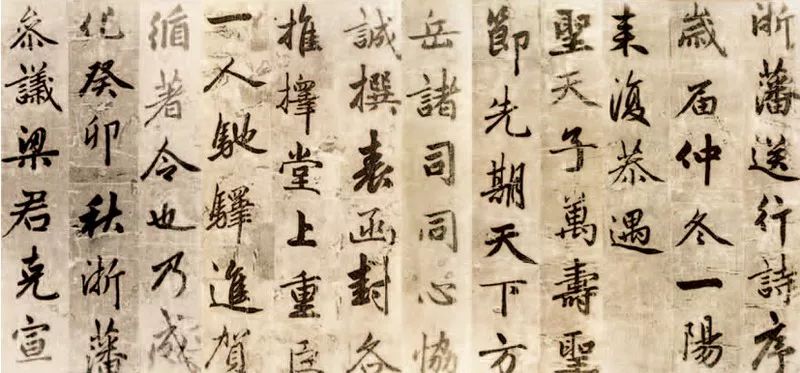 浙藩送行詩序
歲届仲冬一陽
来復恭遇
聖天子萬壽聖
節先期天下方
岳諸司同心協
誠撰表函封各
推擇堂上重臣
一人馳驛進賀
循著令也乃成
化癸卯秋浙藩
叅議梁君克宣